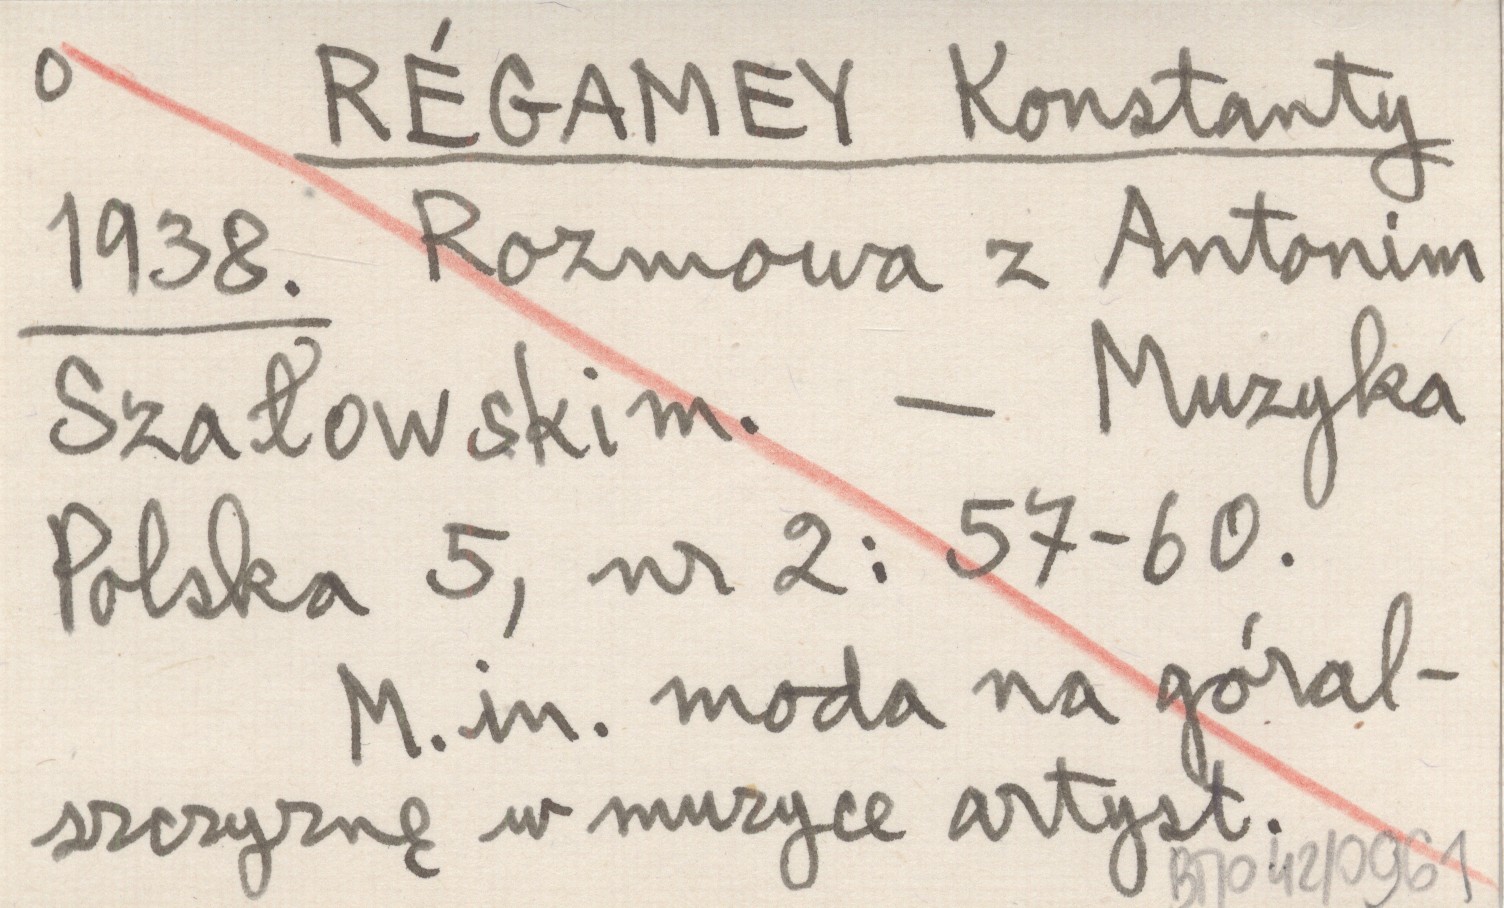 O RÉGAMEY Konstanty
1938. Rozmowa z Antonim
Szałowskim. — Muzyka
Polska 5, nr 2: 57-60.
M.in. moda na góral-
szczyznę w muzyce artyst.
42/0961